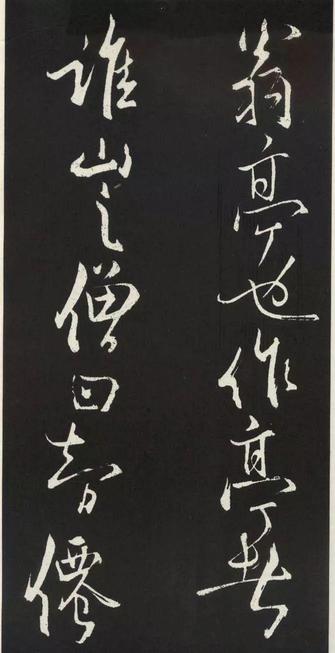 翁亭也作亭者
誰山之僧曰智僊